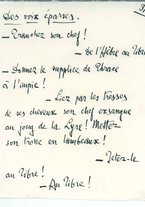 Des voix éparses.
— Tranchez son chef !
— De l'Hèbre au Tibre
— Donnez le supplice de Thrace
à l'impie !
— Liez par les tresses
de ses cheveux son chef exsangue
au joug de la Lyre ! Mettez
son tronc en lambeaux !
— Jetez-le
au Tibre !
— Au Tibre !